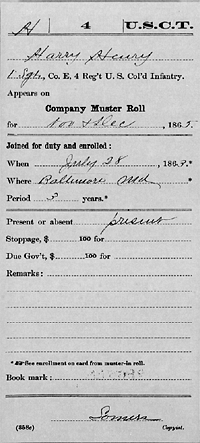 H 4 U.S.C.T.
Harry Henry
1 Sgt., Co. E, 4 Reg't U. S. Col'd Infantry.
Appears on
Company Muster Roll
for Nov & Dec, 1865.
Joined for duty and enrolled:
When July 28, 186 .*
Where Baltimore Md *
Period 3 years.*
Present or absent present
Stoppage, $ 100 for
Due Gov't, $ 100 for
Remarks:
* enrollment on card from muster-in roll.
Book mark:
(358c) Copyist.